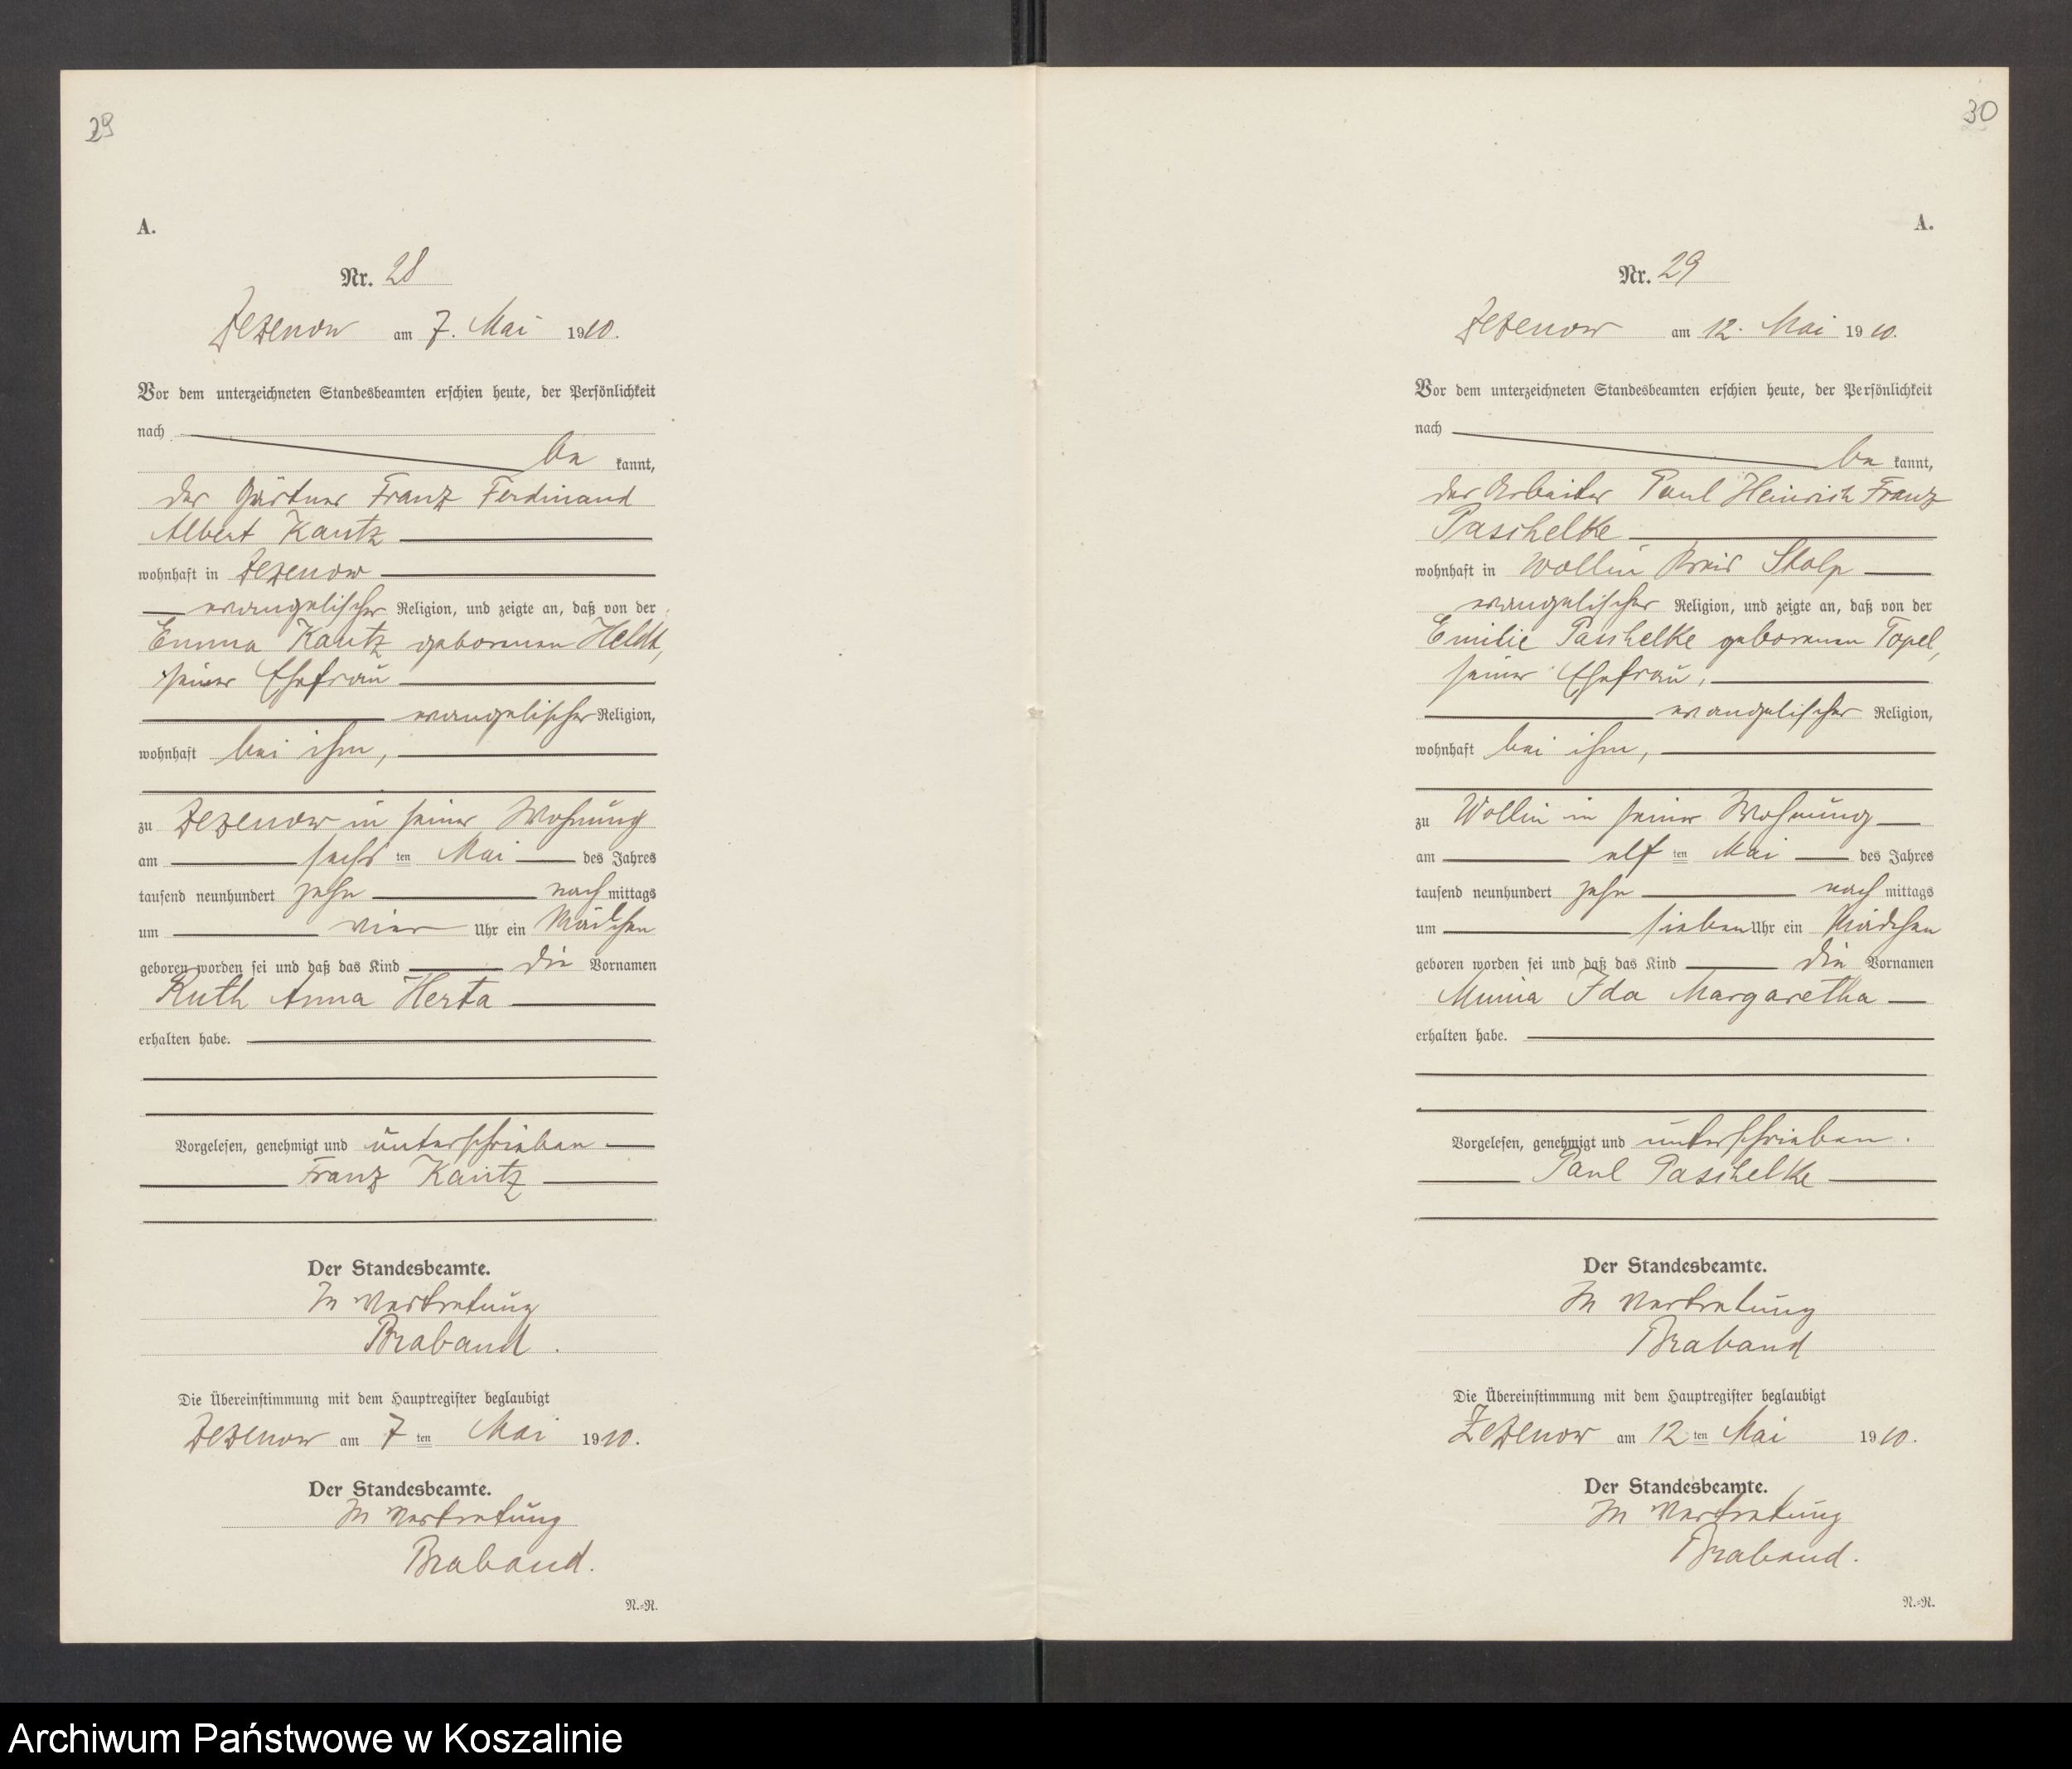 29
A.
Nr. 28
Zezenow am 7. Mai 1910.
Vor dem unterzeichneten Standesbeamten erschien heute, der Persönlichkeit
nach
be kannt,
der Gärtner Franz Ferdinand
Albert Kautz
wohnhaft in Zezenow
evangelischer Religion, und zeigte an, daß von der
Emma Kautz geborenen Heldt,
seiner Ehefrau
evangelischer Religion,
wohnhaft bei ihm,
zu Zezenow in seiner Wohnung
am sechs ten Mai des Jahres
tausend neunhundert zehn nach mittags
um vier Uhr ein Mädchen
geboren worden sei und daß das Kind die Vornamen
Ruth Anna Herta
erhalten habe.
Vorgelesen, genehmigt und unterschrieben
Franz Kautz
Der Standesbeamte.
In Vertretung
Braband.
Die Übereinstimmung mit dem Hauptregister beglaubigt
Zezenow am 7 ten Mai 1910.
Der Standesbeamte.
In Vertretung
Braband.
N.=N.
30
A.
Nr. 29
Zezenow am 12. Mai 1910.
Vor dem unterzeichneten Standesbeamten erschien heute, der Persönlichkeit
nach
be kannt,
der Arbeiter Paul Heinrich Franz
Paschelke
wohnhaft in Wollin Kreis Stolp
evangelischer Religion, und zeigte an, daß von der
Emilie Paschelke geborenen Topel,
seiner Ehefrau,
evangelischer Religion,
wohnhaft bei ihm,
zu Wollin in seiner Wohnung
am elf ten Mai des Jahres
tausend neunhundert zehn nach mittags
um sieben Uhr ein Mädchen
geboren worden sei und daß das Kind die Vornamen
Ida Margaretha
erhalten habe.
Vorgelesen, genehmigt und unterschrieben.
Paul Paschelke
Der Standesbeamte.
In Vertretung
Braband
Die Übereinstimmung mit dem Hauptregister beglaubigt
Zezenow am 12 ten Mai 1910.
Der Standesbeamte.
In Vertretung
Braband.
N.=N.
Archiwum Państwowe w Koszalinie